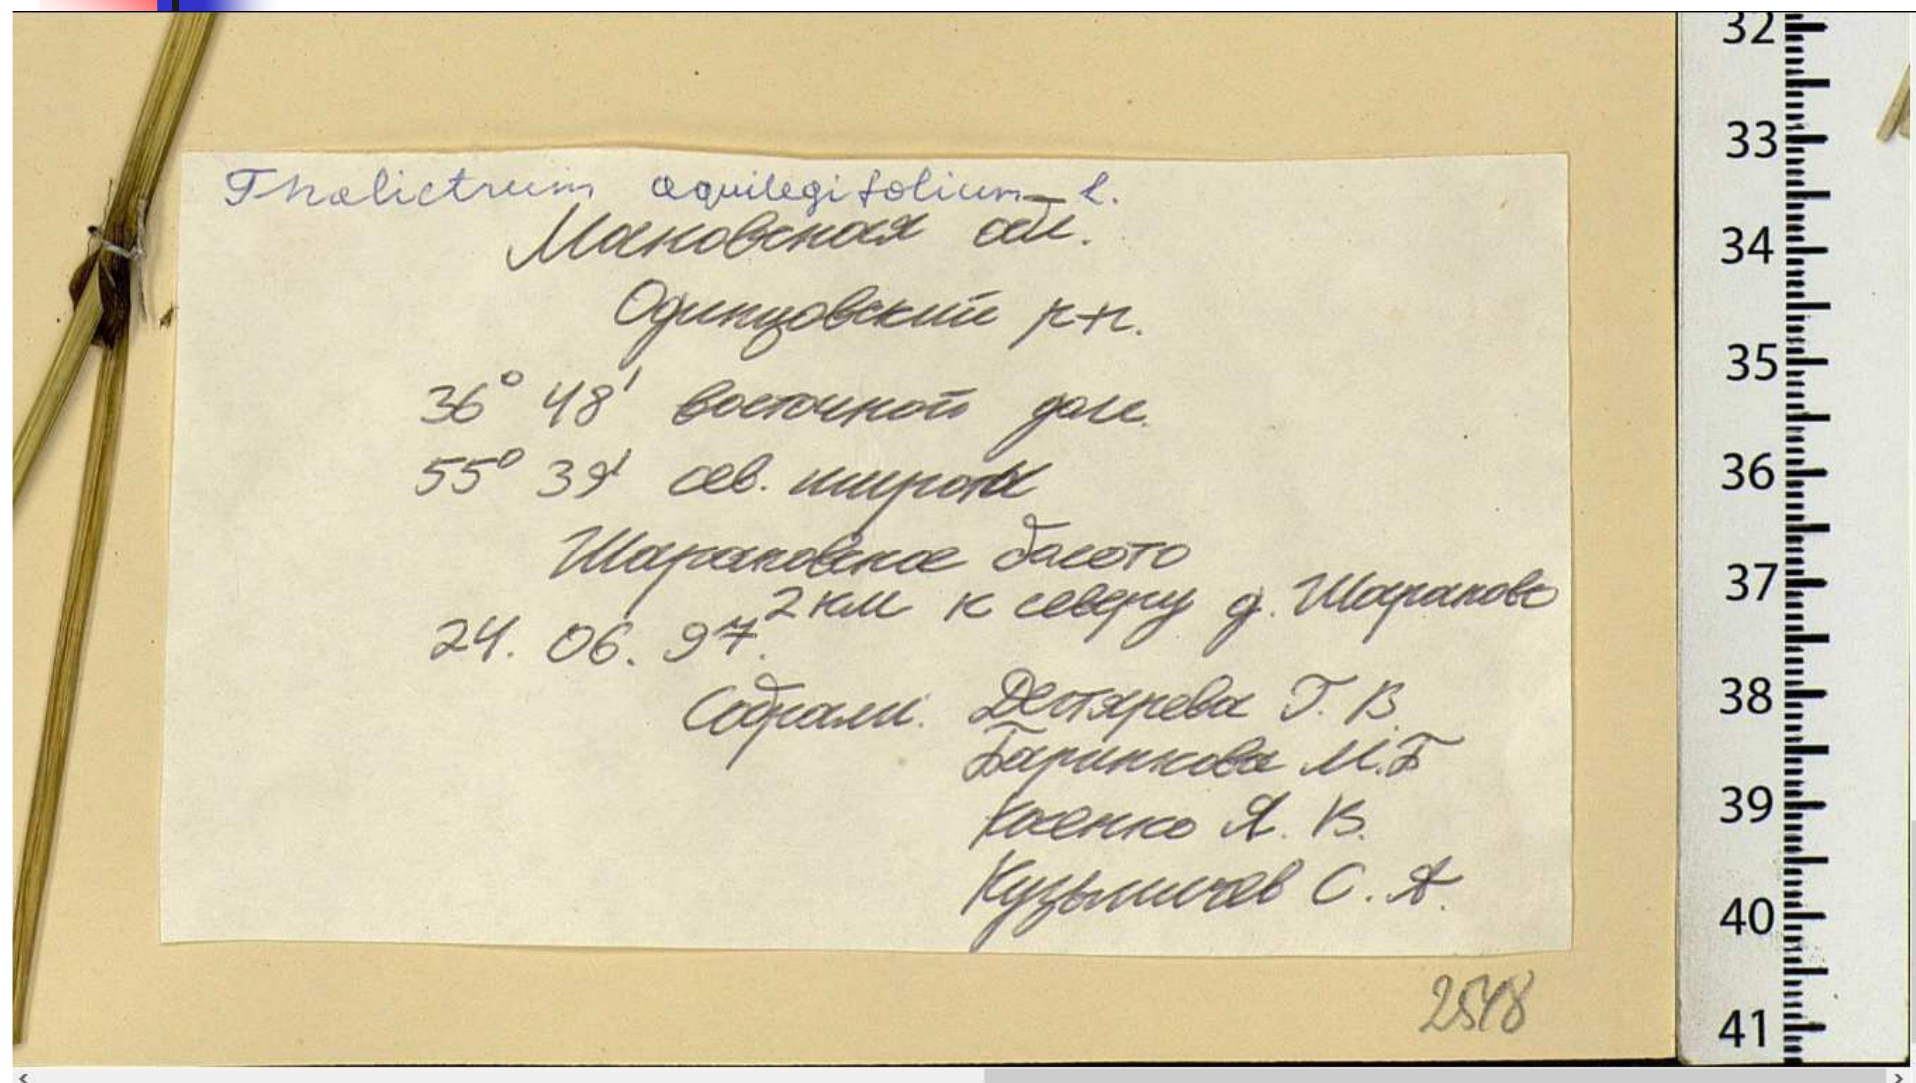 Thalictrum aquilegifolium L.
Московская обл.
Одинцовский р-н.
36° 48' восточной дол.
55° 39' сев. широты
Шараповское болото
2 км к северу д. Шарапово
24. 06. 97.
Собрали. Дегтярева Г. В.
Баринкова М. Б
Коенко Я. В.
Кузьмичев С. А.
2548
32
33
34
35
36
37
38
39
40
41